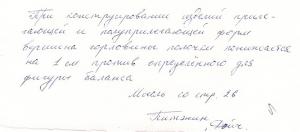 При конструировании изделий приле-
гающей и полуприлегающей форм
вершина горловины полочки понижается
на 1 см против определённого для
фигуры баланса
Мысль со стр. 26